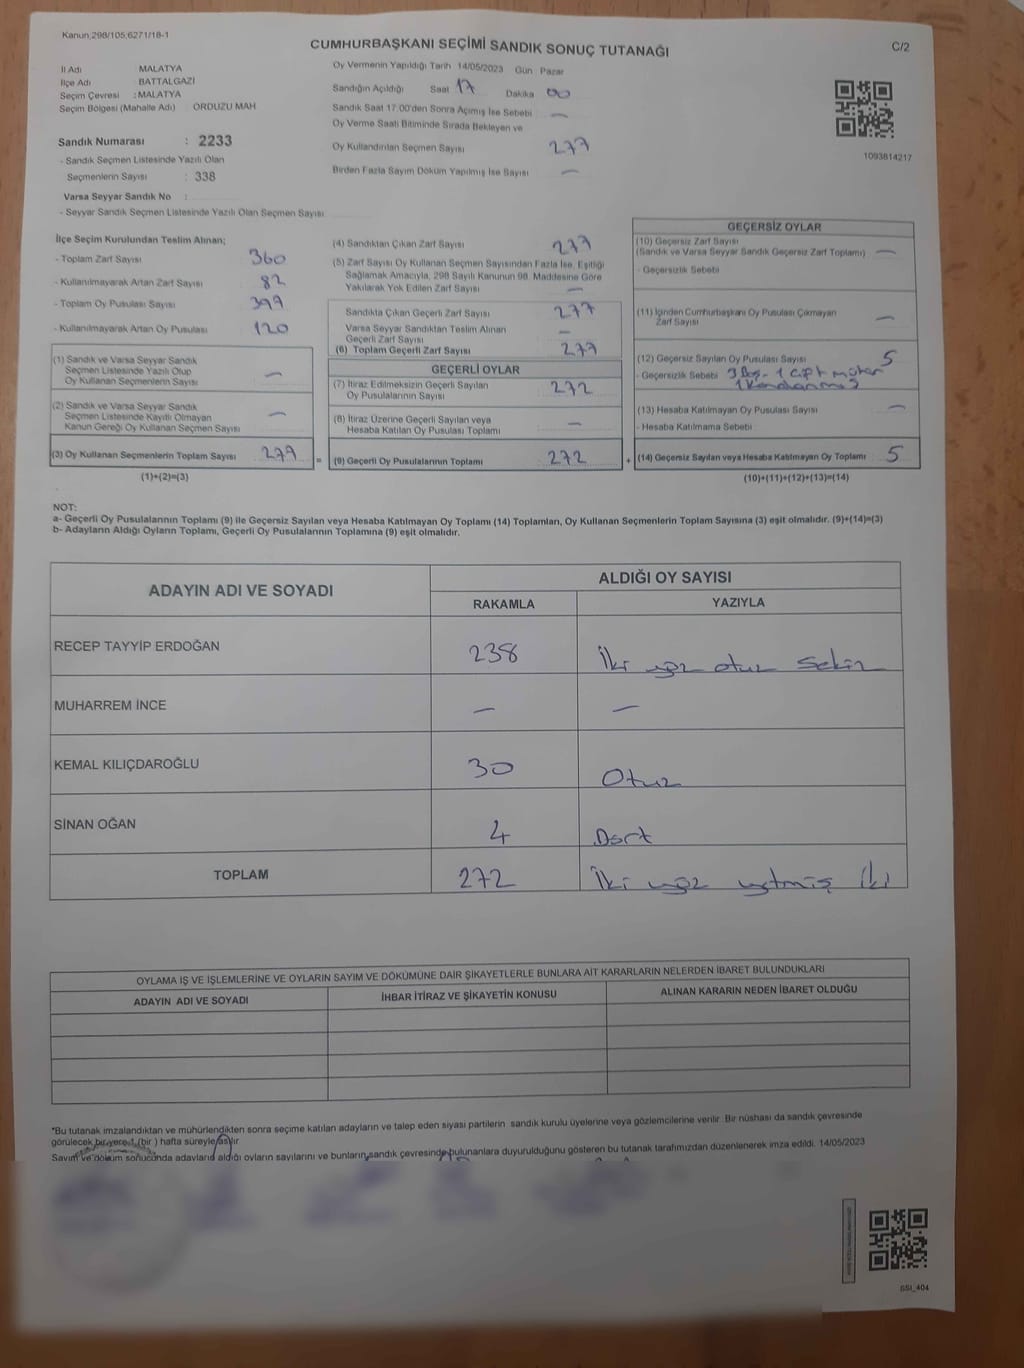 Kanun;298/105;6271/18-1
CUMHURBAŞKANI SEÇİMİ SANDIK SONUÇ TUTANAĞI
C/2
İl Adı MALATYA
İlçe Adı : BATTALGAZİ
Seçim Çevresi : MALATYA
Seçim Bölgesi (Mahalle Adı) ORDUZU MAH
Sandık Numarası : 2233
- Sandık Seçmen Listesinde Yazılı Olan
Seçmenlerin Sayısı : 338
Varsa Seyyar Sandık No :
- Seyyar Sandık Seçmen Listesinde Yazılı Olan Seçmen Sayısı
Oy Vermenin Yapıldığı Tarih 14/05/2023 Gün Pazar
Sandığın Açıldığı Saat 17 Dakika 00
Sandık Saat 17:00'den Sonra Açımış İse Sebebi —
Oy Verme Saati Bitiminde Sırada Bekleyen ve
Oy Kullandırılan Seçmen Sayısı 277
Birden Fazla Sayım Döküm Yapılmış İse Sayısı —
1093814217
İlçe Seçim Kurulundan Teslim Alınan;
- Toplam Zarf Sayısı 360
- Kullanılmayarak Artan Zarf Sayısı 82
- Toplam Oy Pusulası Sayısı 397
- Kullanılmayarak Artan Oy Pusulası 120
(1) Sandık ve Varsa Seyyar Sandık
Seçmen Listesinde Yazılı Olup
Oy Kullanan Seçmenlerin Sayısı —
(2) Sandık ve Varsa Seyyar Sandık
Seçmen Listesinde Kayıtlı Olmayan
Kanun Gereği Oy Kullanan Seçmen Sayısı —
(3) Oy Kullanan Seçmenlerin Toplam Sayısı 277 =
(1)+(2)=(3)
(4) Sandıktan Çıkan Zarf Sayısı 277
(5) Zarf Sayısı Oy Kullanan Seçmen Sayısından Fazla İse, Eşitliği
Sağlamak Amacıyla, 298 Sayılı Kanunun 98. Maddesine Göre
Yakılarak Yok Edilen Zarf Sayısı —
Sandıkta Çıkan Geçerli Zarf Sayısı 277
Varsa Seyyar Sandıktan Teslim Alınan
Geçerli Zarf Sayısı —
(6) Toplam Geçerli Zarf Sayısı 277
GEÇERLİ OYLAR
(7) İtiraz Edilmeksizin Geçerli Sayılan
Oy Pusulalarının Sayısı 272
(8) İtiraz Üzerine Geçerli Sayılan veya
Hesaba Katılan Oy Pusulası Toplamı —
(9) Geçerli Oy Pusulalarının Toplamı 272 +
GEÇERSİZ OYLAR
(10) Geçersiz Zarf Sayısı
(Sandık ve Varsa Seyyar Sandık Geçersiz Zarf Toplamı) —
- Geçersizlik Sebebi
(11) İçinden Cumhurbaşkanı Oy Pusulası Çıkmayan
Zarf Sayısı —
(12) Geçersiz Sayılan Oy Pusulası Sayısı 5
- Geçersizlik Sebebi 3 Boş - 1 çift mühür
(13) Hesaba Katılmayan Oy Pusulası Sayısı —
- Hesaba Katılmama Sebebi
(14) Geçersiz Sayılan veya Hesaba Katılmayan Oy Toplamı 5
(10)+(11)+(12)+(13)=(14)
NOT:
a- Geçerli Oy Pusulalarının Toplamı (9) ile Geçersiz Sayılan veya Hesaba Katılmayan Oy Toplamı (14) Toplamları, Oy Kullanan Seçmenlerin Toplam Sayısına (3) eşit olmalıdır. (9)+(14)=(3)
b- Adayların Aldığı Oyların Toplamı, Geçerli Oy Pusulalarının Toplamına (9) eşit olmalıdır.
ADAYIN ADI VE SOYADI
ALDIĞI OY SAYISI
RAKAMLA YAZIYLA
RECEP TAYYİP ERDOĞAN 238 İki yüz otuz sekiz
MUHARREM İNCE — —
KEMAL KILIÇDAROĞLU 30 Otuz
SİNAN OĞAN 4 Dört
TOPLAM 272 İki yüz yetmiş iki
OYLAMA İŞ VE İŞLEMLERİNE VE OYLARIN SAYIM VE DÖKÜMÜNE DAİR ŞİKAYETLERLE BUNLARA AİT KARARLARIN NELERDEN İBARET BULUNDUKLARI
ADAYIN ADI VE SOYADI İHBAR İTİRAZ VE ŞİKAYETİN KONUSU ALINAN KARARIN NEDEN İBARET OLDUĞU
*Bu tutanak imzalandıktan ve mühürlendikten sonra seçime katılan adayların ve talep eden siyasi partilerin sandık kurulu üyelerine veya gözlemcilerine verilir. Bir nüshası da sandık çevresinde
görülecek bir yere 1 (bir) hafta süreyle asılır
Sayım ve döküm sonucunda adayların aldığı oyların sayılarını ve bunların sandık çevresinde bulunanlara duyurulduğunu gösteren bu tutanak tarafımızdan düzenlenerek imza edildi. 14/05/2023
GSI_404